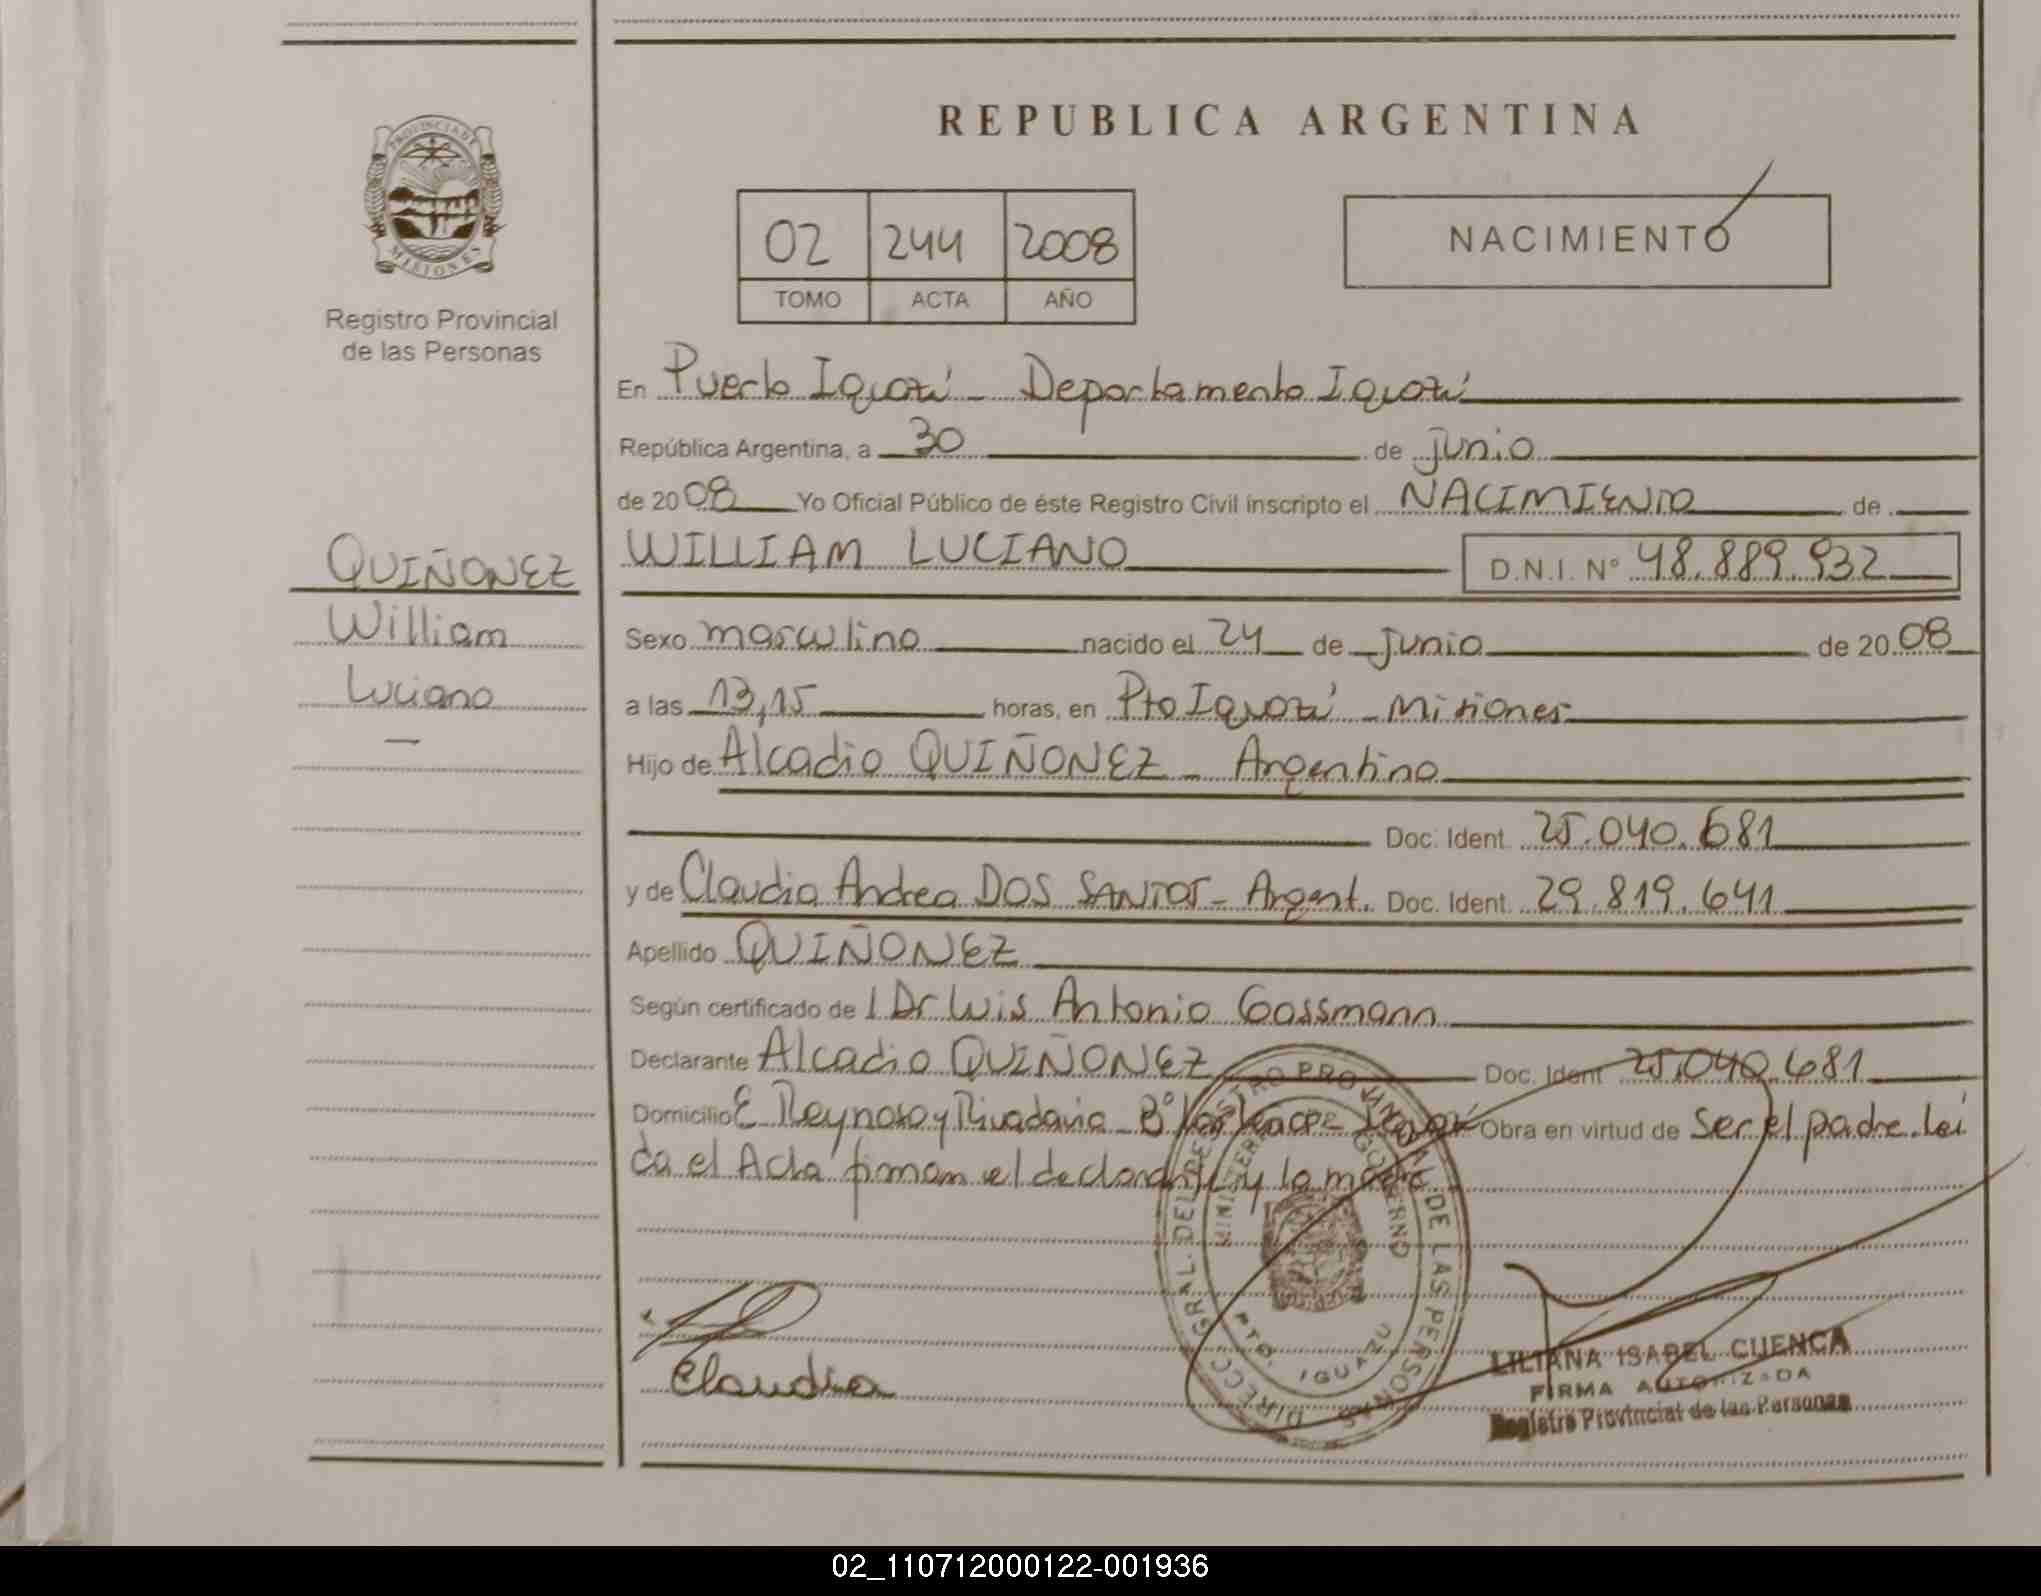 REPUBLICA ARGENTINA
PROVINCIA DE
MISIONES
Registro Provincial
de las Personas
02 244 2008
TOMO ACTA AÑO
NACIMIENTO
En Puerto Iguazú - Departamento Iguazú
República Argentina, a 30 de junio
de 2008 Yo Oficial Público de éste Registro Civil inscripto el NACIMIENTO de
QUIÑONEZ
William
Luciano
—
WILLIAM LUCIANO D.N.I. N° 48.889.932
Sexo masculino nacido el 24 de junio de 2008
a las 13,15 horas, en Pto Iguazú - Misiones
Hijo de Alcadio QUIÑONEZ - Argentino
Doc. Ident. 25.040.681
y de Claudia Andrea DOS SANTOS - Argent. Doc. Ident. 29.819.641
Apellido QUIÑONEZ
Según certificado de l Dr Luis Antonio Gossmann
Declarante Alcadio QUIÑONEZ Doc. Ident 25.040.681
Domicilio E Reynoso y Rivadavia - B° Obra en virtud de Ser el padre. Leí
da el Acta firman el declarante y la madre.
Claudia
DIRECC. GRAL. DEL REGISTRO PROVINCIAL DE LAS PERSONAS
MINISTERIO DE GOBIERNO
PTO. IGUAZU
LILIANA ISABEL CUENCA
FIRMA AUTORIZADA
Registro Provincial de las Personas
02_110712000122-001936